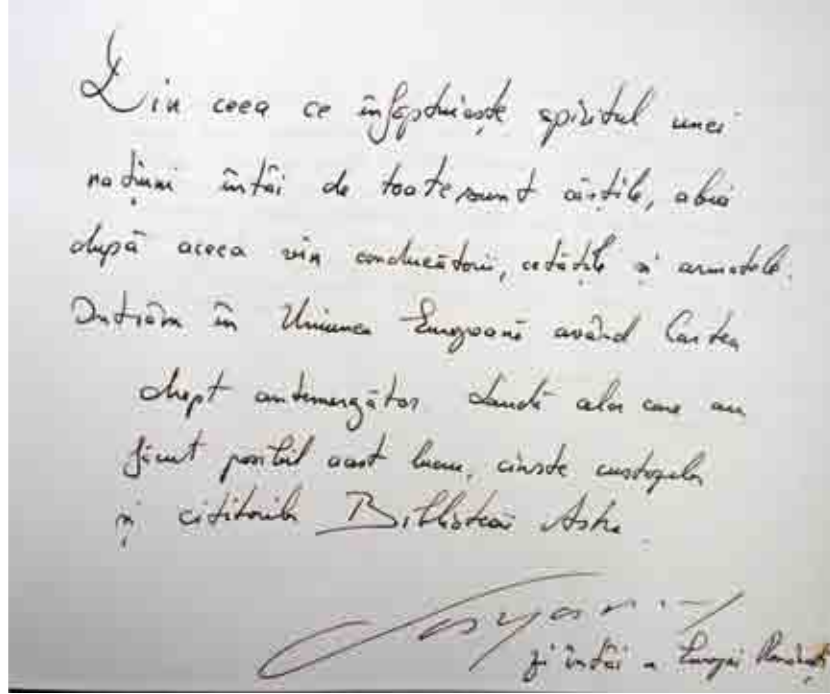 Din ceea ce înfăptuiește spiritul unei
națiuni întâi de toate sunt cărțile, abia
după aceea vin conducătorii, cetățile și armatele.
Intrăm în Uniunea Europeană având Cartea
drept antemergător. Laudă celor care au
făcut posibil acest lucru, cinste custozilor
și cititorilor Bibliotecii Astra.
zi întâi a Europei